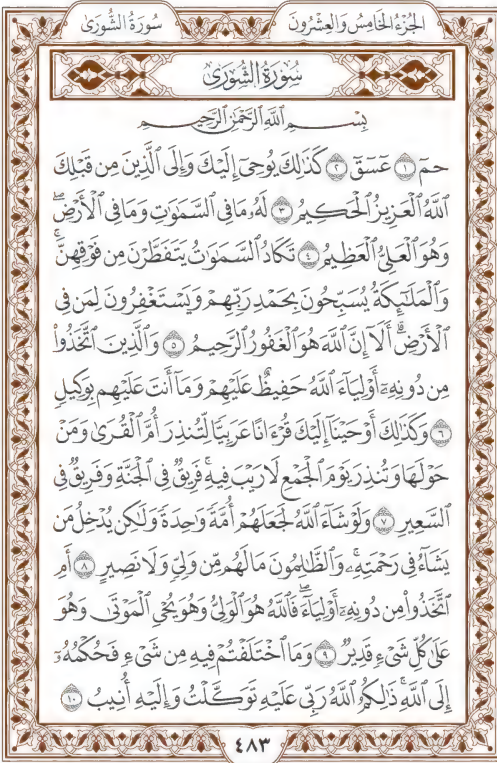 الجزء الخامس والعشرون سورة الشورى
سُورَةُ الشُّورَىٰ
بِسْمِ ٱللَّهِ ٱلرَّحْمَٰنِ ٱلرَّحِيمِ
حمٓ ١ عٓسٓقٓ ٢ كَذَٰلِكَ يُوحِىٓ إِلَيْكَ وَإِلَى ٱلَّذِينَ مِن قَبْلِكَ
ٱللَّهُ ٱلْعَزِيزُ ٱلْحَكِيمُ ٣ لَهُۥ مَا فِى ٱلسَّمَٰوَٰتِ وَمَا فِى ٱلْأَرْضِۖ
وَهُوَ ٱلْعَلِىُّ ٱلْعَظِيمُ ٤ تَكَادُ ٱلسَّمَٰوَٰتُ يَتَفَطَّرْنَ مِن فَوْقِهِنَّۚ
وَٱلْمَلَٰٓئِكَةُ يُسَبِّحُونَ بِحَمْدِ رَبِّهِمْ وَيَسْتَغْفِرُونَ لِمَن فِى
ٱلْأَرْضِۗ أَلَآ إِنَّ ٱللَّهَ هُوَ ٱلْغَفُورُ ٱلرَّحِيمُ ٥ وَٱلَّذِينَ ٱتَّخَذُوا۟
مِن دُونِهِۦٓ أَوْلِيَآءَ ٱللَّهُ حَفِيظٌ عَلَيْهِمْ وَمَآ أَنتَ عَلَيْهِم بِوَكِيلٍ
٦ وَكَذَٰلِكَ أَوْحَيْنَآ إِلَيْكَ قُرْءَانًا عَرَبِيًّا لِّتُنذِرَ أُمَّ ٱلْقُرَىٰ وَمَنْ
حَوْلَهَا وَتُنذِرَ يَوْمَ ٱلْجَمْعِ لَا رَيْبَ فِيهِۚ فَرِيقٌ فِى ٱلْجَنَّةِ وَفَرِيقٌ فِى
ٱلسَّعِيرِ ٧ وَلَوْ شَآءَ ٱللَّهُ لَجَعَلَهُمْ أُمَّةً وَٰحِدَةً وَلَٰكِن يُدْخِلُ مَن
يَشَآءُ فِى رَحْمَتِهِۦۚ وَٱلظَّٰلِمُونَ مَا لَهُم مِّن وَلِىٍّ وَلَا نَصِيرٍ ٨ أَمِ
ٱتَّخَذُوا۟ مِن دُونِهِۦٓ أَوْلِيَآءَۖ فَٱللَّهُ هُوَ ٱلْوَلِىُّ وَهُوَ يُحْىِ ٱلْمَوْتَىٰ وَهُوَ
عَلَىٰ كُلِّ شَىْءٍ قَدِيرٌ ٩ وَمَا ٱخْتَلَفْتُمْ فِيهِ مِن شَىْءٍ فَحُكْمُهُۥٓ
إِلَى ٱللَّهِۚ ذَٰلِكُمُ ٱللَّهُ رَبِّى عَلَيْهِ تَوَكَّلْتُ وَإِلَيْهِ أُنِيبُ ١٠
٤٨٣